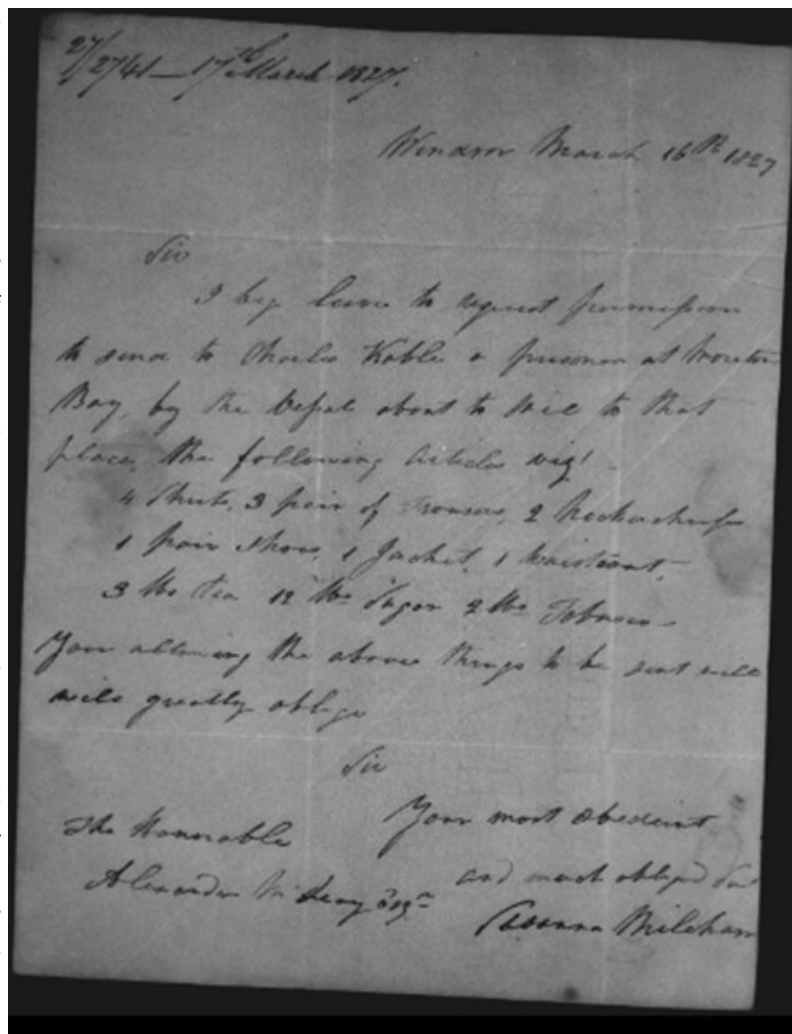 27/2741 — 17th March 1827.
Windsor March 16th 1827
Sir
I beg leave to request permission
to send to Charles Kable a prisoner at Moreton
Bay, by the Vessel about to sail to that
place, the following Articles viz!
4 Shirts, 3 pair of Trousers, 2 Neckerchiefs
1 pair Shoes, 1 Jacket, 1 Waistcoat,
3 lbs Tea 12 lbs Sugar 2 lbs Tobacco
Your allowing the above things to be sent will
will greatly oblige
Sir
Your most Obedient
The Honorable
and most obliged
Alexander McLeay Esqr
Susanna Mileham